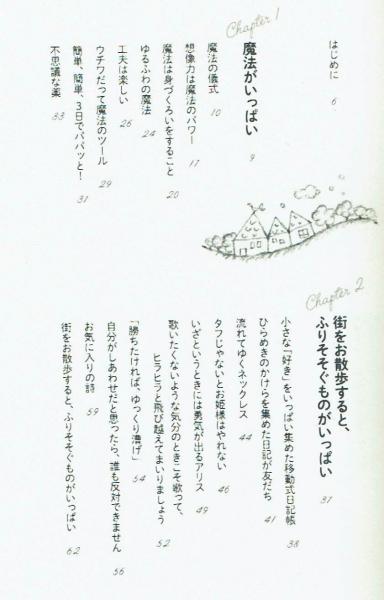 はじめに 6
Chapter 1
魔法がいっぱい 9
魔法の儀式 10
想像力は魔法のパワー 17
魔法は身づくろいをすること 20
ゆるふわの魔法 24
工夫は楽しい 26
ウチワだって魔法のツール 29
簡単、簡単、3日でパパッと! 31
不思議な薬 33
Chapter 2
街をお散歩すると、
ふりそそぐものがいっぱい 37
小さな「好き」をいっぱい集めた移動式日記帳 38
ひらめきのかけらを集めた日記が友だち 41
流れてゆくネックレス 44
タフじゃないとお姫様はやれない 46
いざというときには勇気が出るアリス 49
歌いたくないような気分のときこそ歌って、
ヒラヒラと飛び越えてまいりましょう 52
「勝ちたければ、ゆっくり漕げ」 54
自分がしあわせだと思ったら、誰も反対できません 56
お気に入りの詩 59
街をお散歩すると、ふりそそぐものがいっぱい 62